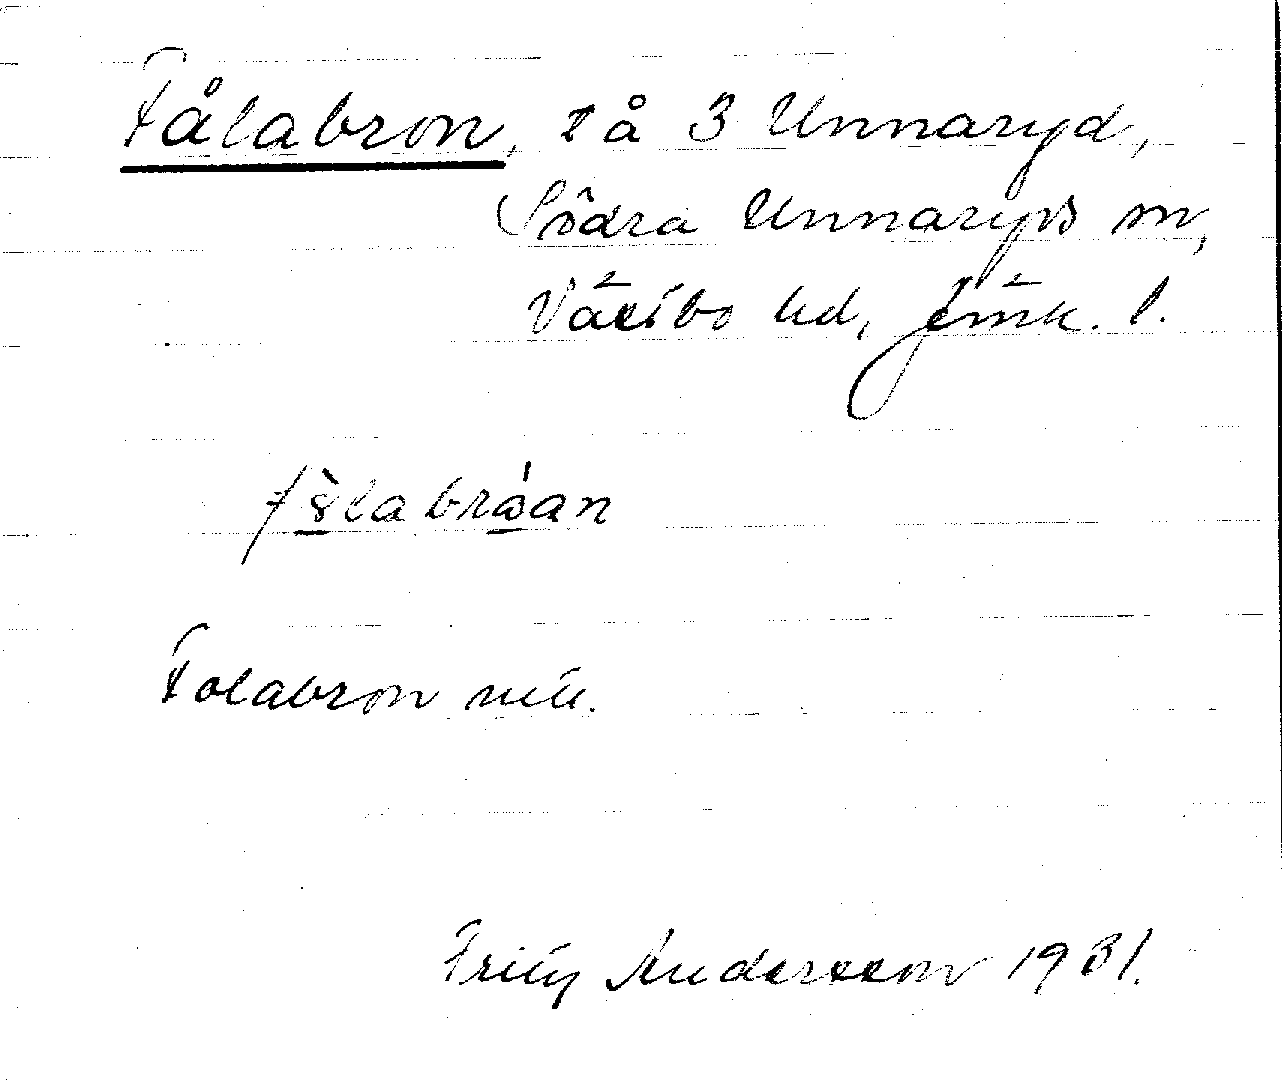 Fålabron, t å 3 Unnaryd,
Södra Unnaryds sn,
Västbo hd, Jönk. l.
fålabråan
Folabron
Fritz Andersson 1931.